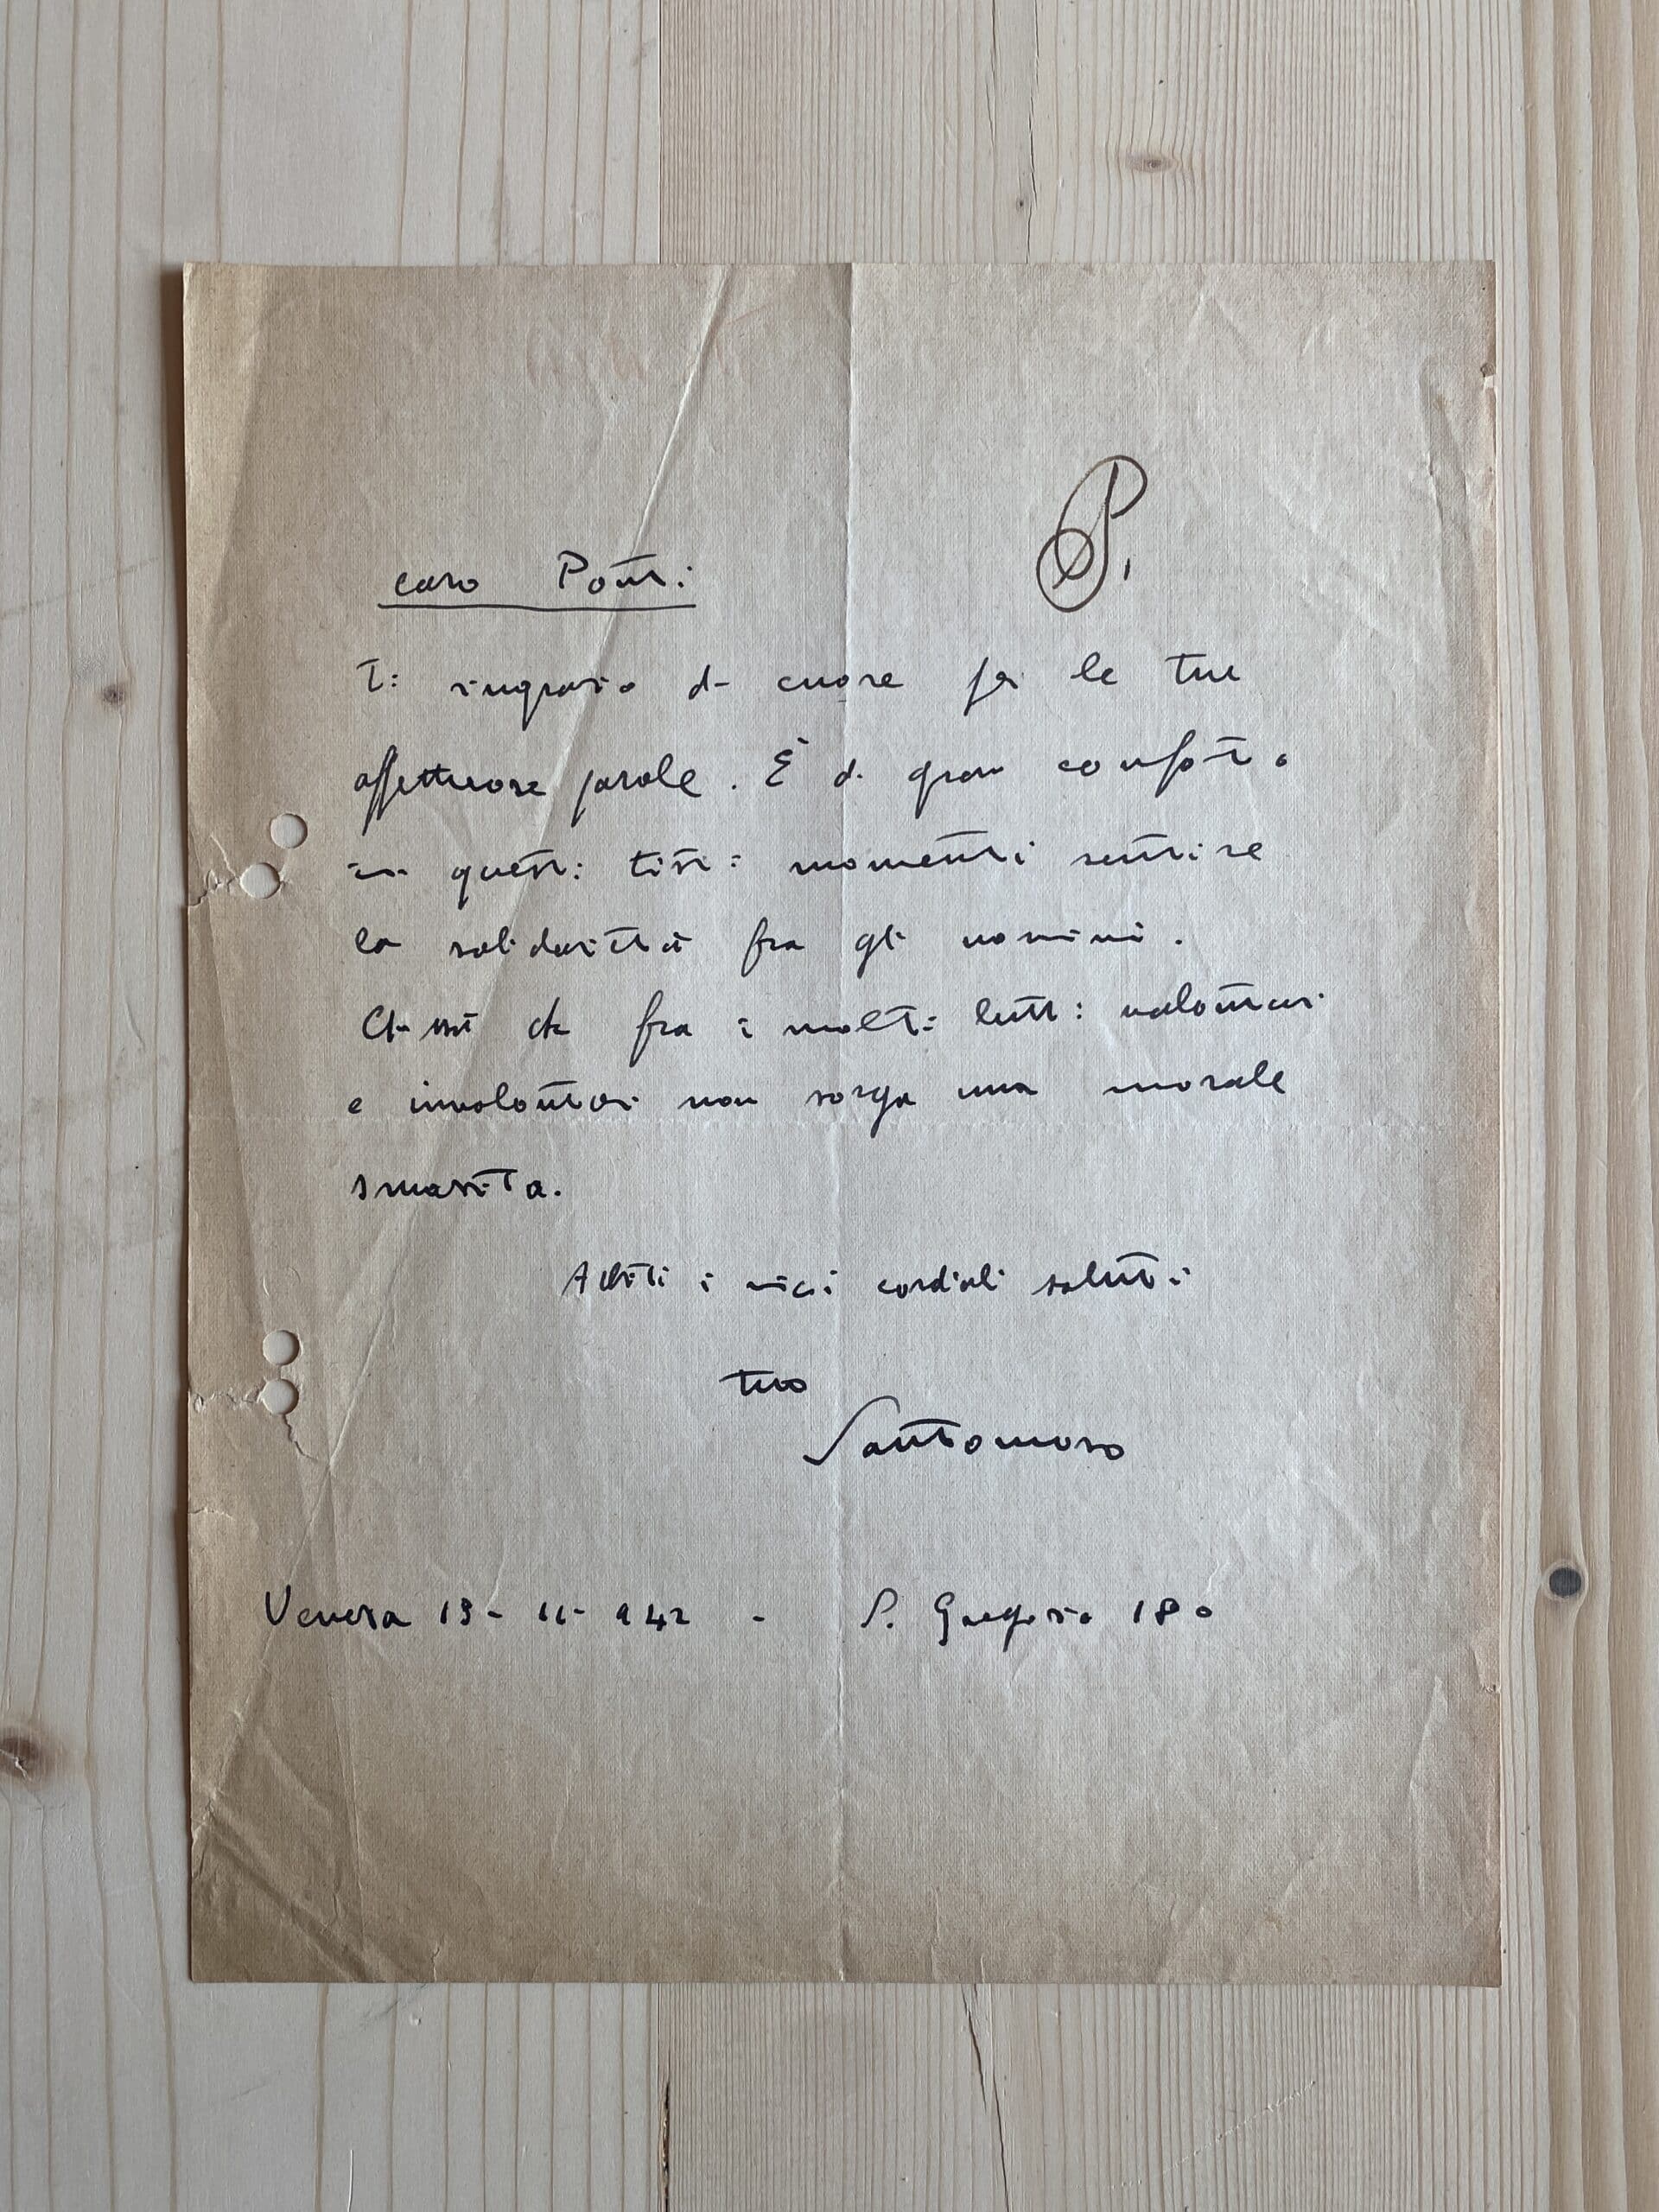 P.
caro Ponti
Ti ringrazio di cuore per le tue
affettuose parole. È di gran conforto
in questi tisti momenti sentire
la solidarietà fra gli uomini.
Chissà che fra i molti lutti volontari
e involontari non sorga una morale
smarrita.
Abbiti i miei cordiali saluti
tuo
Santomaso
Venezia 13-11-942 - S. Gregorio 180